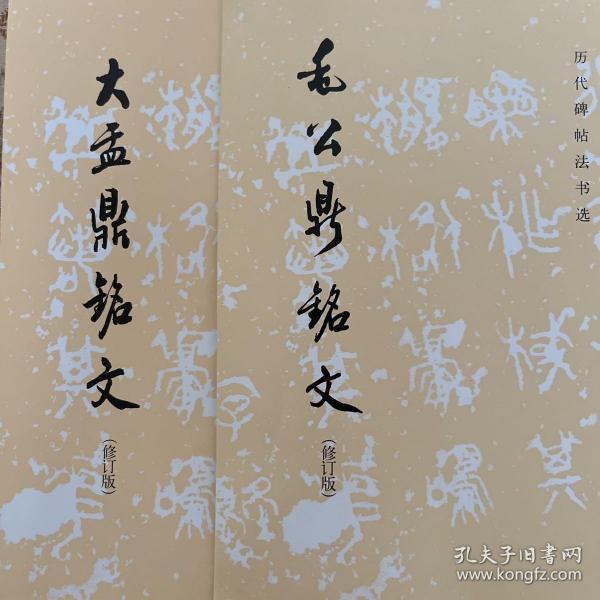 历代碑帖法书选
毛公鼎铭文
(修订版)
大盂鼎铭文
(修订版)
孔夫子旧书网
www.kongfz.com